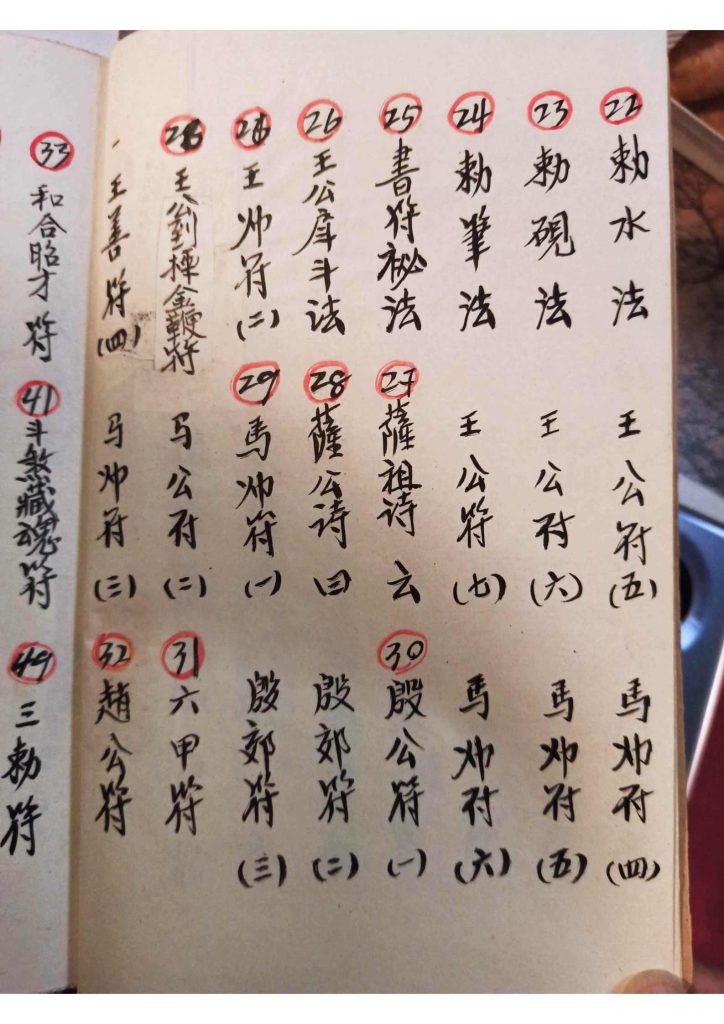 22 勅水法
23 勅硯法
24 勅筆法
25 書符祕法
26 王公斗法
王帅符(二)
王公金鞭符
王善符(四)
王公符(五)
王公符(六)
王公符(七)
27 薩祖诗云
28 薩公诗(三)
29 馬帅符(一)
马公符(二)
马帅符(三)
馬帅符(四)
馬帅符(五)
馬帅符(六)
30 殷公符(一)
殷郊符(二)
殷郊符(三)
31 六甲符
32 趙公符
33 和合昭才符
41 斗煞藏魂符
49 三勅符